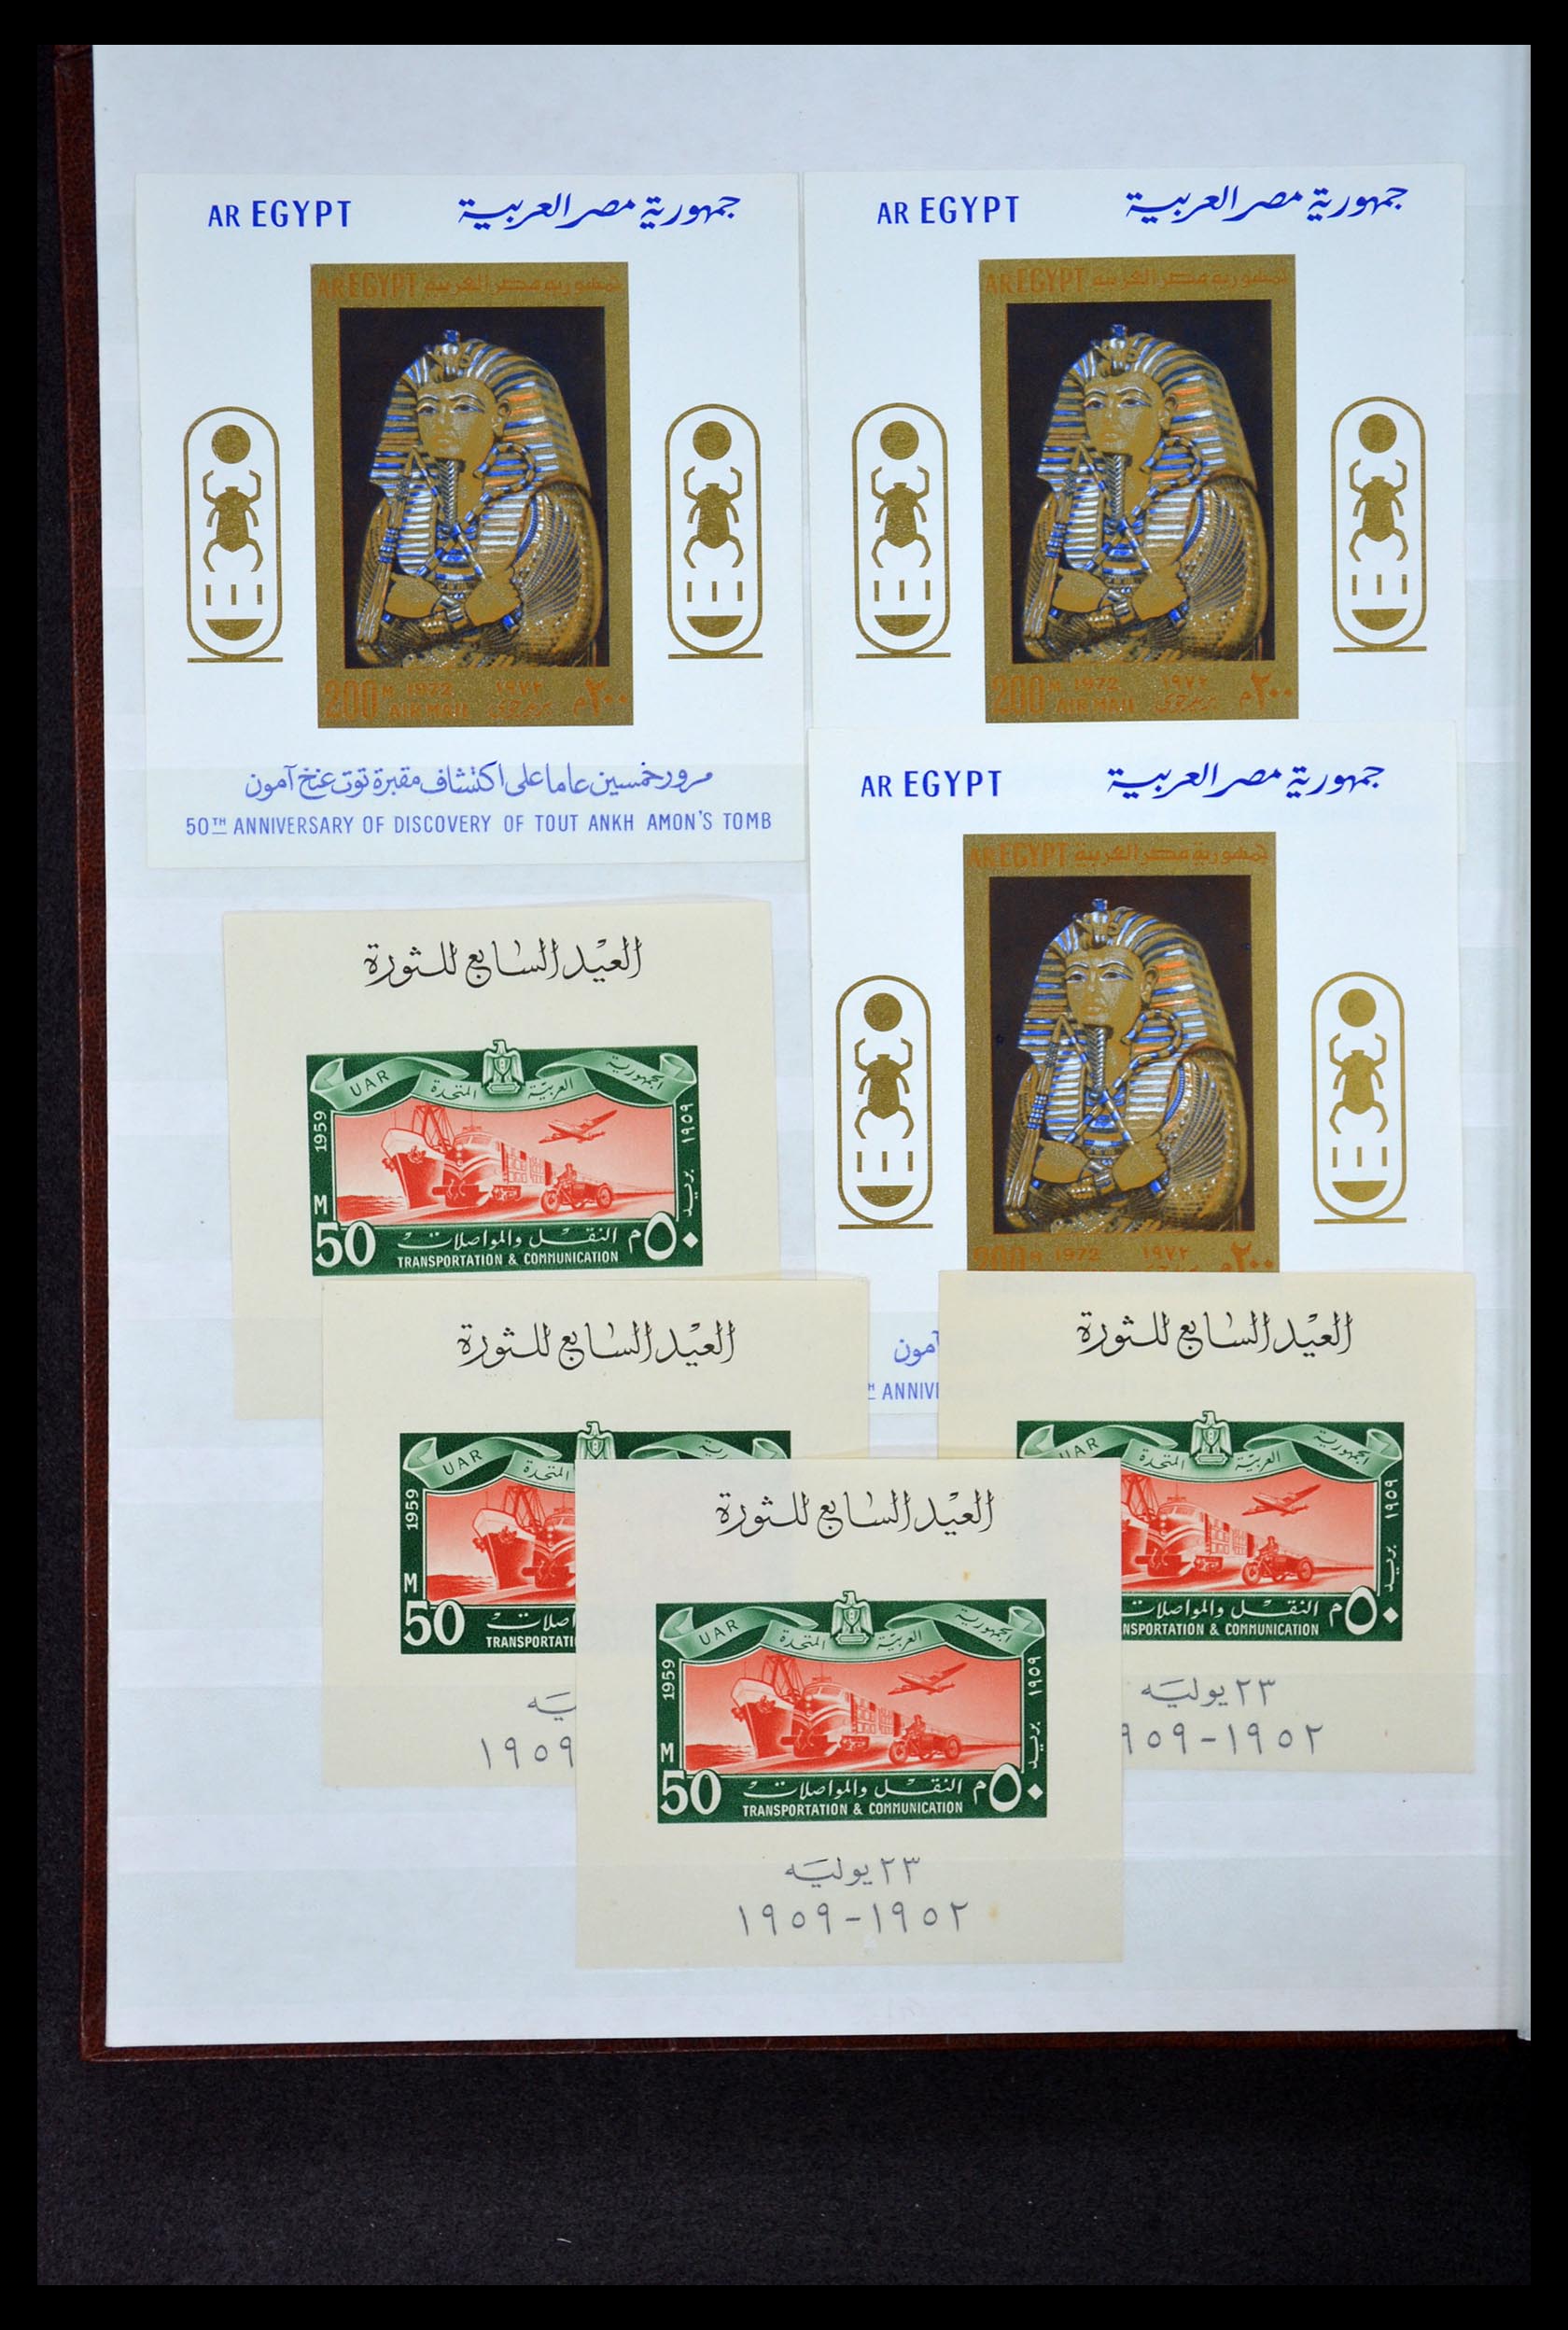 AR EGYPT جمهورية مصر العربية
AR EGYPT جمهورية مصر العربية
200 M 1972 ١٩٧٢ ٢٠٠ م
AIR MAIL بريد جوى
مرور خمسين عاما على اكتشاف مقبرة توت عنخ آمون
50TH ANNIVERSARY OF DISCOVERY OF TOUT ANKH AMON'S TOMB
AR EGYPT جمهورية مصر العربية
AR EGYPT جمهورية مصر العربية
200 M 1972 ١٩٧٢ ٢٠٠ م
AIR MAIL بريد جوى
AR EGYPT جمهورية مصر العربية
AR EGYPT جمهورية مصر العربية
200 M 1972 ١٩٧٢ ٢٠٠ م
آمون
TH ANNIV
العيد السابع للثورة
UAR الجمهورية العربية المتحدة
1959 ١٩٥٩ بريد
M 50 النقل والمواصلات ٥٠ م
TRANSPORTATION & COMMUNICATION
العيد السابع للثورة
UAR المتحدة
1959
M 50
TRANSPORTATI
١٩٥٩
العيد السابع للثورة
UAR الجمهورية العربية المتحدة
١٩٥٩ بريد
النقل والمواصلات ٥٠ م
NSPORTATION & COMMUNICATION
٢٣ يوليه
١٩٥٢-٩٥٩
العيد السابع للثورة
UAR الجمهورية العربية المتحدة
1959 ١٩٥٩ بريد
M 50 النقل والمواصلات ٥٠ م
TRANSPORTATION & COMMUNICATION
٢٣ يوليه
١٩٥٢-١٩٥٩